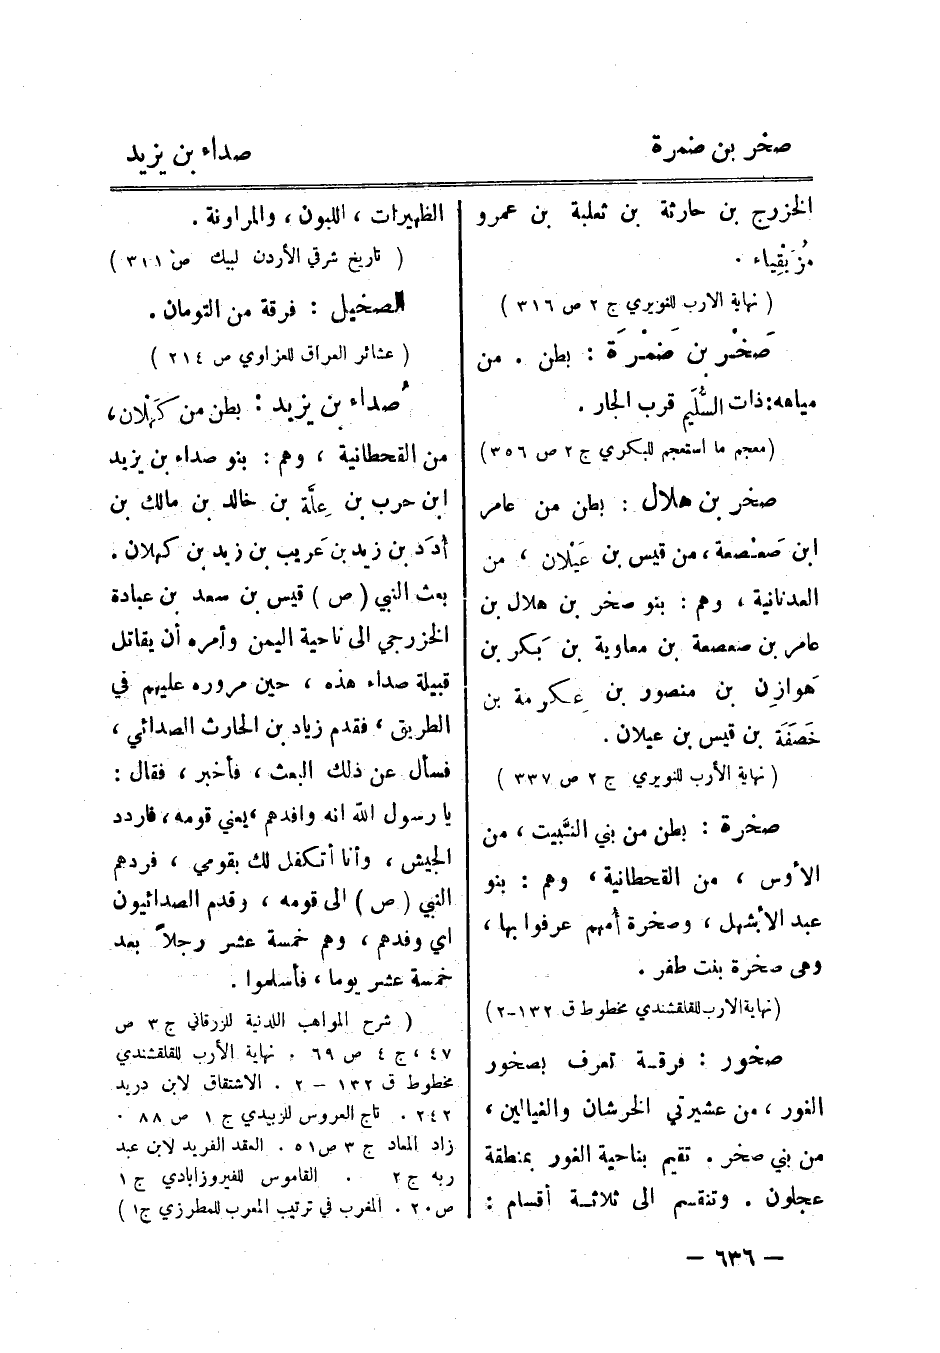 صخر بن ضمرة
صداء بن يزيد
الخزرج بن حارثة بن ثعلبة بن عمرو
مُزَيْقِياء .
( نهاية الارب للنويري ج ٢ ص ٣١٦ )
صَخْر بن ضَمْرَة : بطن . من
مياهه: ذات السُّلَيم قرب الجار .
(معجم ما استعجم للبكري ج ٢ ص ٣٥٦)
صخر بن هلال : بطن من عامر
ابن صَعْصعة ، من قيس بن عَيْلان ، من
العدنانية ، وهم : بنو صخر بن هلال بن
عامر بن صعصعة بن معاوية بن بَكر بن
هَوازِن بن منصور بن عِكرمة بن
خَصَفَة بن قيس بن عيلان .
( نهاية الأرب للنويري ج ٢ ص ٣٣٧ )
صخرة : بطن من بني النَّبيت ، من
الأوس ، من القحطانية ، وهم : بنو
عبد الأشهل ، وصخرة أمهم عرفوا بها ،
وهي صخرة بنت ظفر .
(نهاية الارب للقلقشندي مخطوط ق ١٣٢-٢)
صخور : فرقة تعرف بصخور
الغور ، من عشيرتي الخرشان والغيالين ،
من بني صخر . تقيم بناحية الغور بمنطقة
عجلون . وتنقسم الى ثلاثة أقسام :
الظهيرات ، اللبون ، والمراونة .
( تاريخ شرقي الأردن لبيك ص ٣١١ )
الصخيل : فرقة من التومان .
( عشائر العراق للعزاوي ص ٢١٤ )
صُداء بن يزيد : بطن من كَهْلان ،
من القحطانية ، وهم : بنو صداء بن يزيد
ابن حرب بن عِلَّة بن خالد بن مالك بن
أدَد بن زيد بن عَريب بن زيد بن كهلان .
بعث النبي ( ص ) قيس بن سعد بن عبادة
الخزرجي الى ناحية اليمن وأمره أن يقاتل
قبيلة صداء هذه ، حين مروره عليهم في
الطريق ، فقدم زياد بن الحارث الصدائي ،
فسأل عن ذلك البعث ، فأخبر ، فقال :
يا رسول الله انه وافدهم ، يعني قومه ، فاردد
الجيش ، وأنا أتكفل لك بقومي ، فردهم
النبي ( ص ) الى قومه ، وقدم الصدائيون
اي وفدهم ، وهم خمسة عشر رجلاً بعد
خمسة عشر يوما ، فأسلموا .
( شرح المواهب اللدنية للزرقاني ج ٣ ص
٤٧ ، ج ٤ ص ٦٩ . نهاية الأرب للقلقشندي
مخطوط ق ١٣٢ – ٢ . الاشتقاق لابن دريد
٢٤٢ . تاج العروس للزبيدي ج ١ ص ٨٨ .
زاد المعاد ج ٣ ص ٥١ . العقد الفريد لابن عبد
ربه ج ٢ . القاموس للفيروزابادي ج ١
ص ٢٠ . المغرب في ترتيب المعرب للمطرزي ج ١ )
– ٦٣٦ –